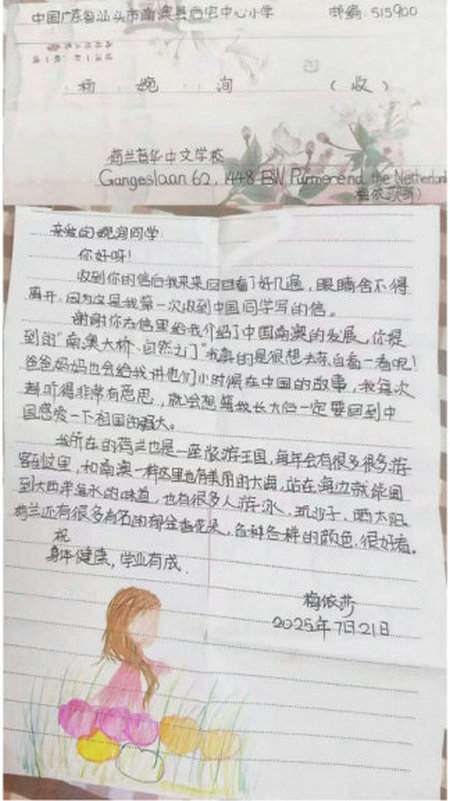 中国广东省汕头市南澳县后宅中心小学 邮编: 515900
杨 婉 洵 (收)
荷兰菁华中文学校
Gangeslaan 62, 1448 BW Purmerend, the Netherland
梅依莎(寄)
亲爱的婉洵同学:
你好呀!
收到你的信后我来来回回看了好几遍,眼睛舍不得
离开,因为这是我第一次收到中国同学写的信。
谢谢你在信里给我介绍了中国南澳的发展,你提
到的“南澳大桥、自然之门”我真的是很想去亲自看一看呢!
爸爸妈妈也会给我讲他们小时候在中国的故事,我每次
都听得非常有意思,就会想着我长大后一定要回到中
国感受一下祖国的强大。
我所在的荷兰也是一座旅游王国,每年会有很多很多游
客到这里,和南澳一样这里也有美丽的大海,站在海边就能闻
到大西洋海水的味道,也有很多人游泳,玩沙子,晒太阳
荷兰还有很多有名的郁金香花朵,各种各样的颜色,很好看。
祝
身体健康,学业有成.
梅依莎
2025年7月21日